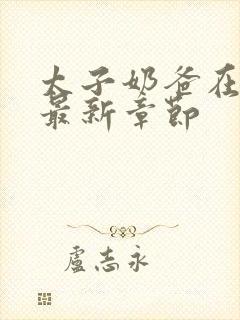 太子奶爸在
最新章節
盧志永